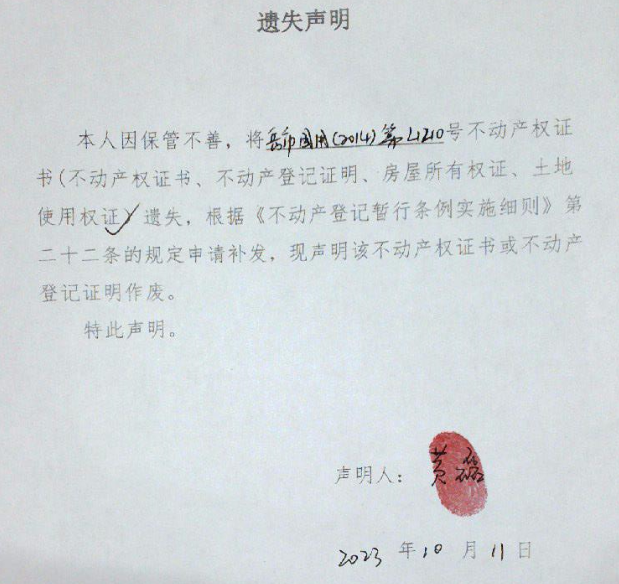 遗失声明
本人因保管不善，将岳市国用(2014)第L1210号不动产权证
书(不动产权证书、不动产登记证明、房屋所有权证、土地
使用权证)遗失，根据《不动产登记暂行条例实施细则》第
二十二条的规定申请补发，现声明该不动产权证书或不动产
登记证明作废。
特此声明。
声明人：黄磊
2023年10月11日